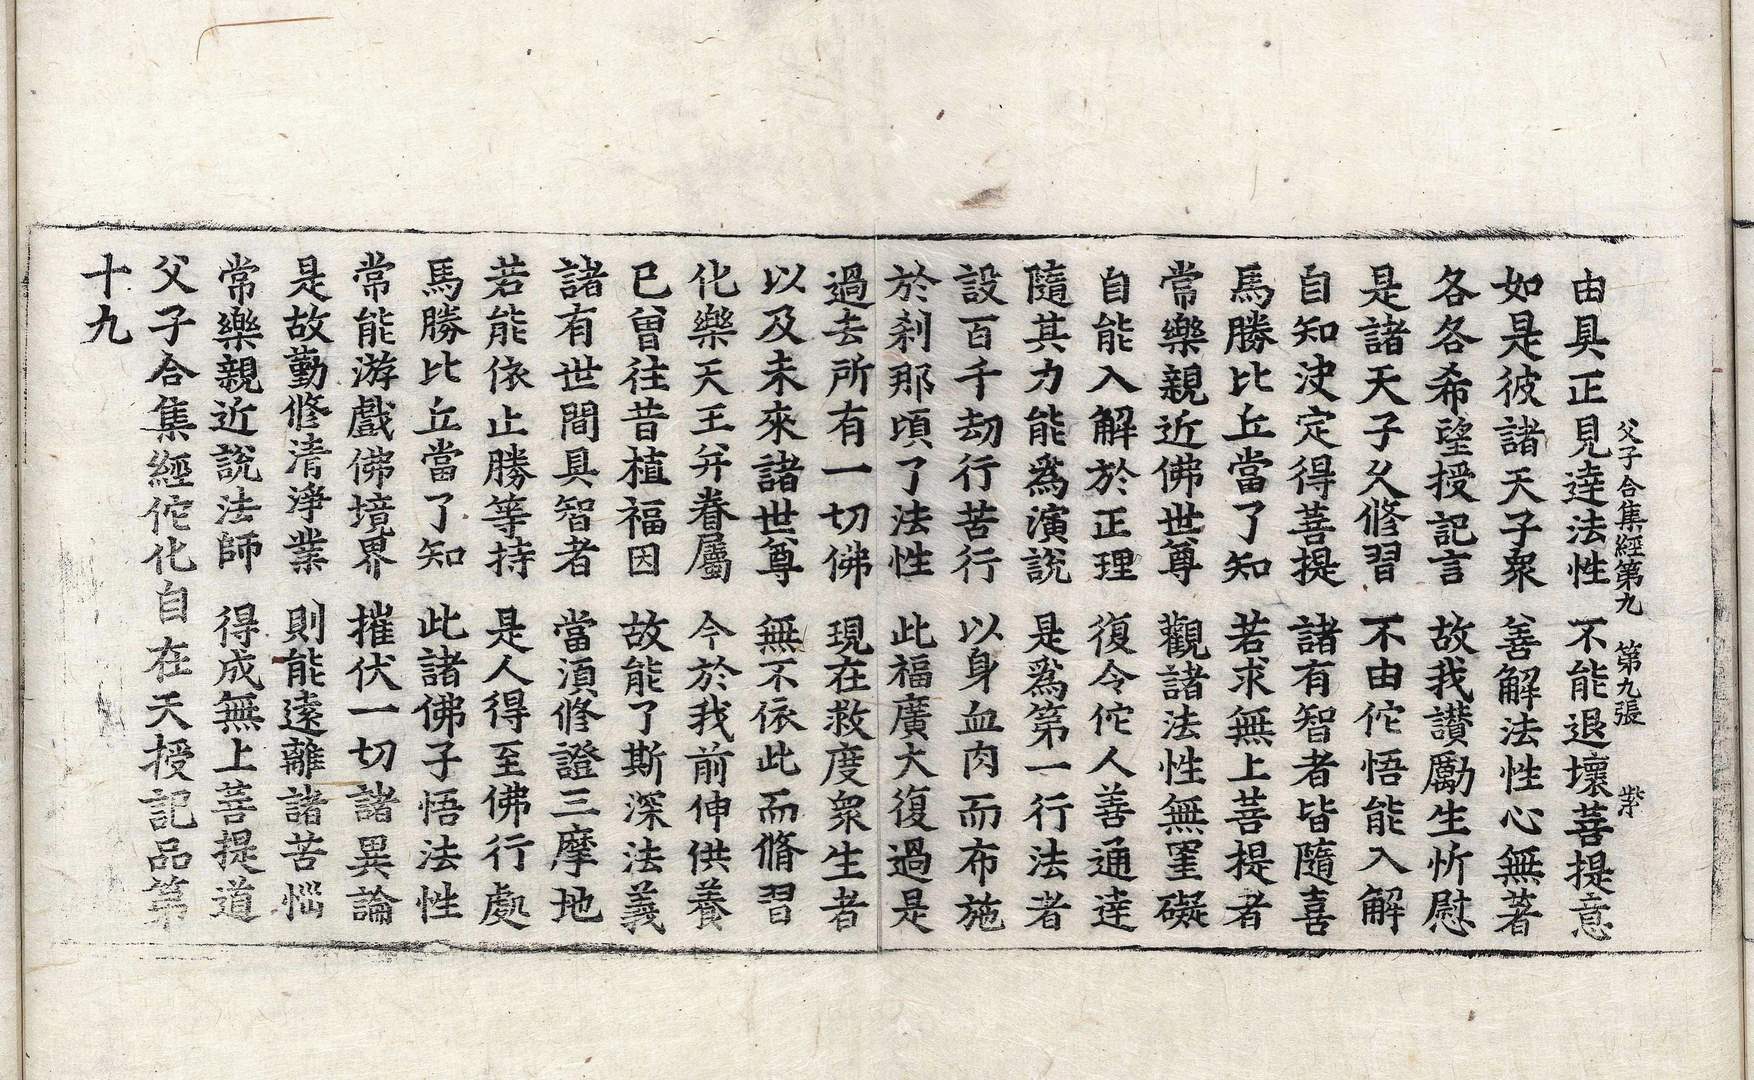 父子合集經第九 第九張 紫
由具正見逹法性 不能退壞菩提意
如是彼諸天子衆 善解法性心無著
各各希望授記言 故我讃勵生忻慰
是諸天子久修習 不由佗悟能入解
自知決定得菩提 諸有智者皆隨喜
馬勝比丘當了知 若求無上菩提者
常樂親近佛世尊 觀諸法性無罣礙
自能入解於正理 復令佗人善通逹
隨其力能爲演說 是爲第一行法者
設百千劫行苦行 以身血肉而布施
於刹那頃了法性 此福廣大復過是
過去所有一切佛 現在救度衆生者
以及未來諸世尊 無不依此而脩習
化樂天王弁眷屬 今於我前伸供養
已曾往昔植福因 故能了斯深法義
諸有世間具智者 當湏修證三摩地
若能依止勝等持 是人得至佛行處
馬勝比丘當了知 此諸佛子悟法性
常能游戲佛境界 摧伏一切諸異論
是故勤修清淨業 則能逺離諸苦惱
常樂親近說法師 得成無上菩提道
父子合集經佗化自在天授記品第
十九